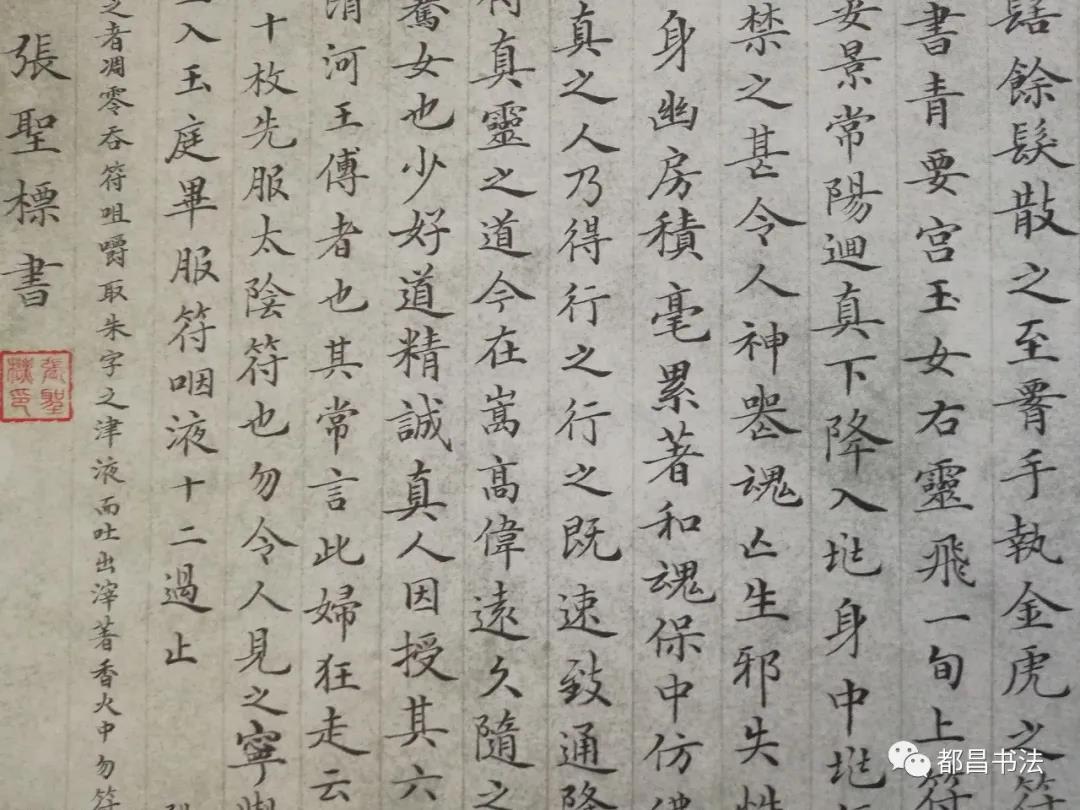 髻餘髮散之至腰手執金虎之符
書青要宮玉女右靈飛一旬上符
安景常陽迴真下降入兆身中兆
禁之甚令人神喪魂亡生邪失性
身幽房積毫累著和魂保中仿佛
真之人乃得行之行之既速致通降
真靈之道今在嵩高偉遠久隨之
女也少好道精誠真人因授其六
河王傅者也其常言此婦狂走云
十枚先服太陰符也勿令人見之寧
入玉庭畢服符咽液十二過止
之者凋零吞符咀嚼取朱字之津液而吐出滓著香火中勿符
張聖標書
張聖標印
都昌书法